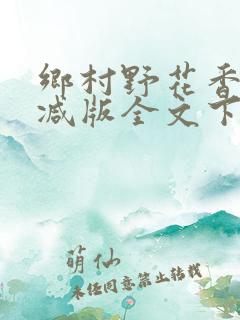 鄉村野花香
减版全文下
萌仙
未经同意禁止转载